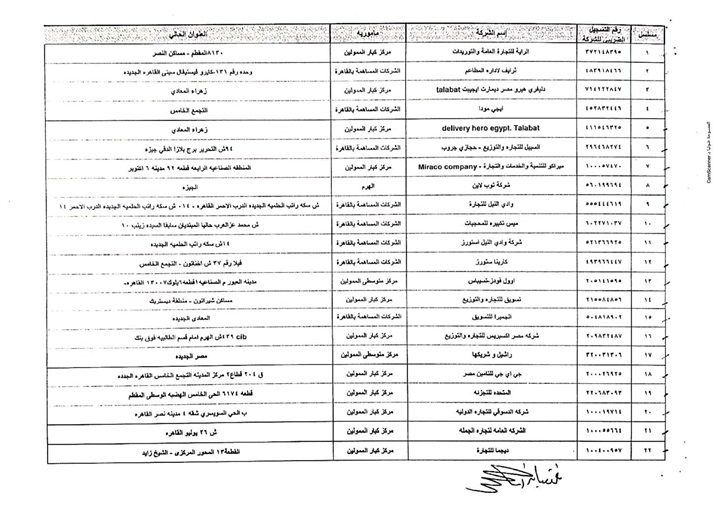 مسلسل رقم التسجيل الضريبي للشركة إسم الشركة مأموريه العنوان الحالي
١ ٣٧٢١٤٨٣٩٥ الراية للتجارة العامة والتوريدات مركز كبار الممولين ٨١٣٠المقطم - مساكن النصر
٢ ٤٨٣٩١٨٤٦٦ ترايف لاداره المطاعم الشركات المساهمة بالقاهرة وحده رقم ١٣١-كايرو فيستيفال سيتى القاهره الجديده
٣ ٧١٤١٢٢٨٤٧ دليفري هيرو مصر ديمارت ايجيبت talabat مركز كبار الممولين زهراء المعادي
٤ ٤٥٢٨٣٢٤٤٦ ايجي مودا الشركات المساهمة بالقاهرة التجمع الخامس
٥ ٤١١٥٤٦٣٢٥ delivery hero egypt. Talabat مركز كبار الممولين زهراء المعادي
٦ ٢٩٦٤٦٨٢٧٤ السبيل للتجاره والتوزيع - حجازي جروب الشركات المساهمة بالقاهرة ٩٤ش التحرير برج بلازا الدقي جيزه
٧ ١٠٠٠٥٧٤٧٠ ميراكو للتنمية والخدمات والتجارة - Miraco company مركز كبار الممولين المنطقه الصناعيه الرابعه قطعه ٩٢ مدينه ٦ اكتوبر
٨ ٥٦٠١٩٩٦٩٤ شركة توب لاين الهرم الجيزه
٩ ٥٥٥٤٤٤٦١٩ وادي النيل للتجارة الشركات المساهمة بالقاهرة ش سكه راتب الحلميه الجديده الدرب الاحمر القاهره - ١٤٠ ش سكه راتب الحلميه الجديده الدرب الاحمر ١٤
١٠ ٦٠٢٢٧١٠٣٧ ميس تكبيره للمحجبات الشركات المساهمة بالقاهرة ش محمد عزالعرب حاليا المبتديان سابقا السيده زينب ١٠
١١ ٥٢١٣٦٦٩٢٥ شركة وادى النيل استورز الشركات المساهمة بالقاهرة ١٤ش سكه راتب الحلميه الجديده
١٢ ٤٩٣٩٦٦٤٤٧ كارينا ستورز الشركات المساهمة بالقاهرة فيلا رقم ٣٧ ش اخناتون - التجمع الخامس
١٣ ٢٠٥١٤١٠٩٥ اوول فودز-تسيباس مركز متوسطى الممولين مدينه العبور م الصناعيه ١قطعه٦بلوك١٣٠٠٧ القاهره.
١٤ ٢١٥٥٨٤٨٥٦ تسويق للتجاره والتوزيع مركز كبار الممولين مساكن شيراتون - منطقة ديستريك
١٥ ٥٠٤٨١٨٩٠٢ الجميرا للتسويق الشركات المساهمة بالقاهرة المعادى الجديده
١٦ ٢٠٩٨٣٢٤٨٧ شركه مصر اكسبريس للتجاره والتوزيع مركز كبار الممولين ٤٣٩ش الهرم امام قسم الطالبيه فوق بنك cib
١٧ ٣٢٠٠٣١٣٠٦ راشيل و شريكها مركز متوسطى الممولين مصر الجديده
١٨ ٢٠٠٠٢٦٩٢٥ جي اي جي للتامين مصر مركز كبار الممولين ق ٢٠٤ قطاع٢ مركز المدينه التجمع الخامس القاهره الجدده
١٩ ٢٢٠٦٨٣٠٩٣ المتحده للتجزئه مركز كبار الممولين قطعه ٦١٧٤ الحي الخامس الهضبه الوسطي المقطم
٢٠ ١٠٠٠١٩٧١٤ شركه الدسوقي للتجاره الدوليه مركز كبار الممولين ب الحي السويسري شقه ٤ مدينه نصر القاهره
٢١ ١٠٠٠٥٥٦٦٤ الشركه العامه لتجاره الجمله مركز كبار الممولين ش ٢٦ يوليو القاهره
٢٢ ١٠٠٤٠٠٩٥٧ ديجما للتجارة مركز كبار الممولين القطعة١٣ المحور المركزى - الشيخ زايد
الممسوحة ضوئيا بـ CamScanner